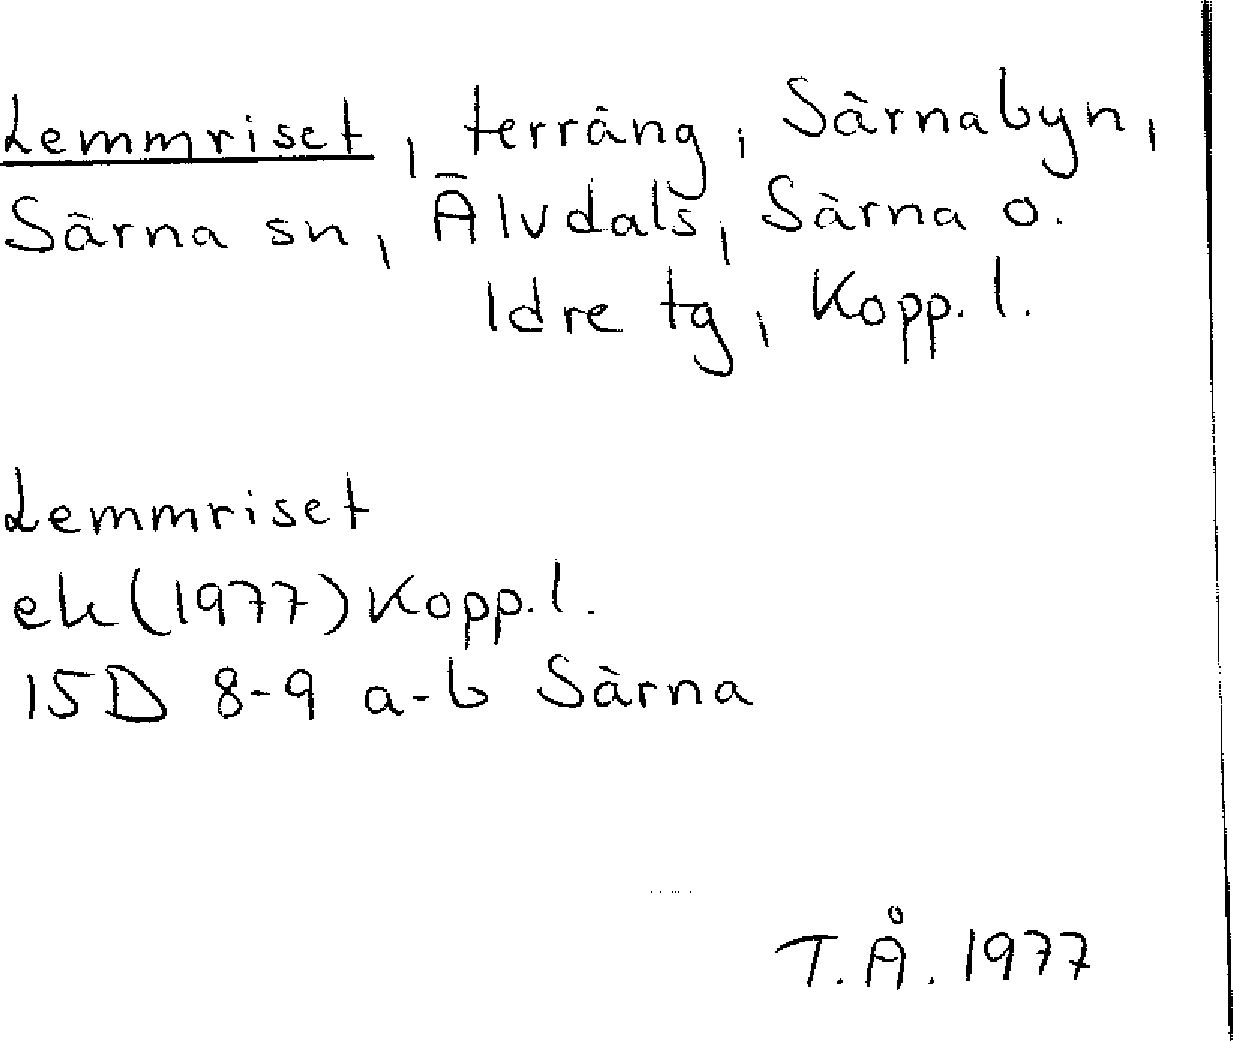 Lemmriset, terräng, Särnabyn,
Särna sn, Älvdals, Särna o.
Idre tg, Kopp. l.
Lemmriset
ek (1977) Kopp. l.
15D 8-9 a-b Särna
T.Å. 1977